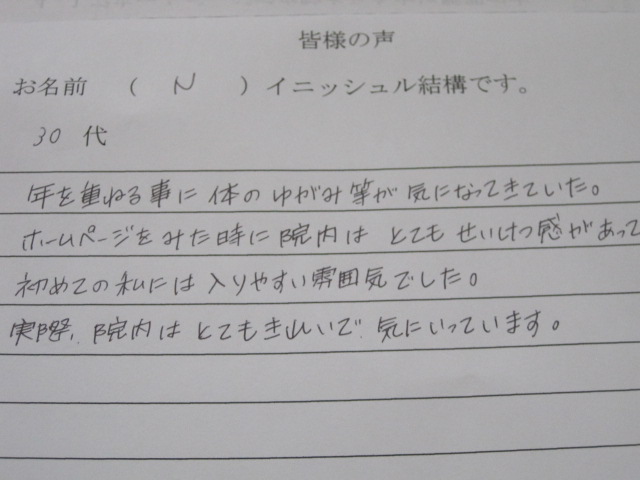 皆様の声
お名前 ( N ) イニッシュル結構です。
30 代
年を重ねる事に 体の ゆがみ等が 気になってきていた。
ホームページを みた時に 院内は とても せいけつ感があって
初めての私には 入りやすい雰囲気でした。
実際、院内は とてもきれいで 気にいっています。